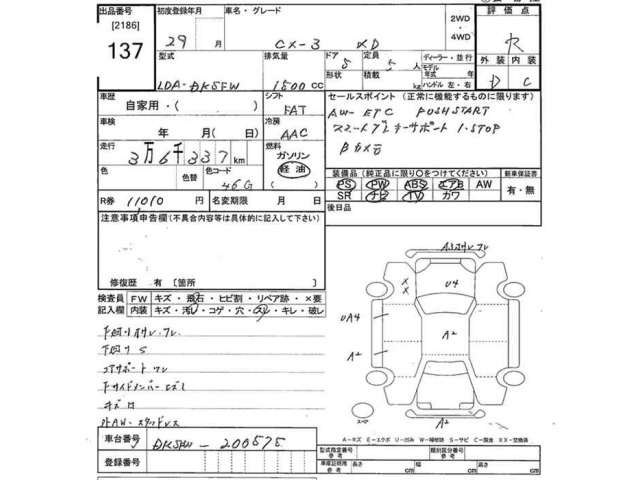 出品番号
[2186]
137
初度登録年月
29 月
車名・グレード
CX-3 XD
2WD
4WD
評価点
R
外装 内装
D C
型式
LDA-DK5FW
排気量
1500 CC
ドア
5
形状
定員
5 人
積載
kg
ディーラー・並行
モデル
年式 年
ハンドル 左・右
車歴
自家用・( )
シフト
FAT
セールスポイント (正常に機能するものに限ります)
AW- ETC PUSHSTART
スマートブレーキサポート i-STOP
Bカメラ
車検
年 月(日)
冷房
AAC
走行
3万6千337 km
燃料
ガソリン
軽油
( )
色
色替
色コード
46G
装備品 (純正品に限り○をつけてください)
PS PW ABS エアB AW
SR ナビ TV カワ
新車保証書
有・無
R券 11010 円
名変期限 月 日
後日品
注意事項申告欄(不具合内容等は具体的に記入して下さい)
修復歴 有 [箇所 ]
検査員
記入欄
FW キズ・飛石・ヒビ割・リペア跡・×要
内装 キズ・汚レ・コゲ・穴・スレ・キレ・破レ
下回りサビ
コアサポートワレ
キズ口
外AW-スタッドレス
U4
X
X
UA4
A2
A2
A2
スペア
A-キズ E-エクボ U-凹み W-補修跡 S-サビ C-腐食 XX-交換済
車台番号
DK5FW-200575
登録番号
型式指定番号
類別区分番号
車庫証明用
長さ cm
幅 cm
高さ cm